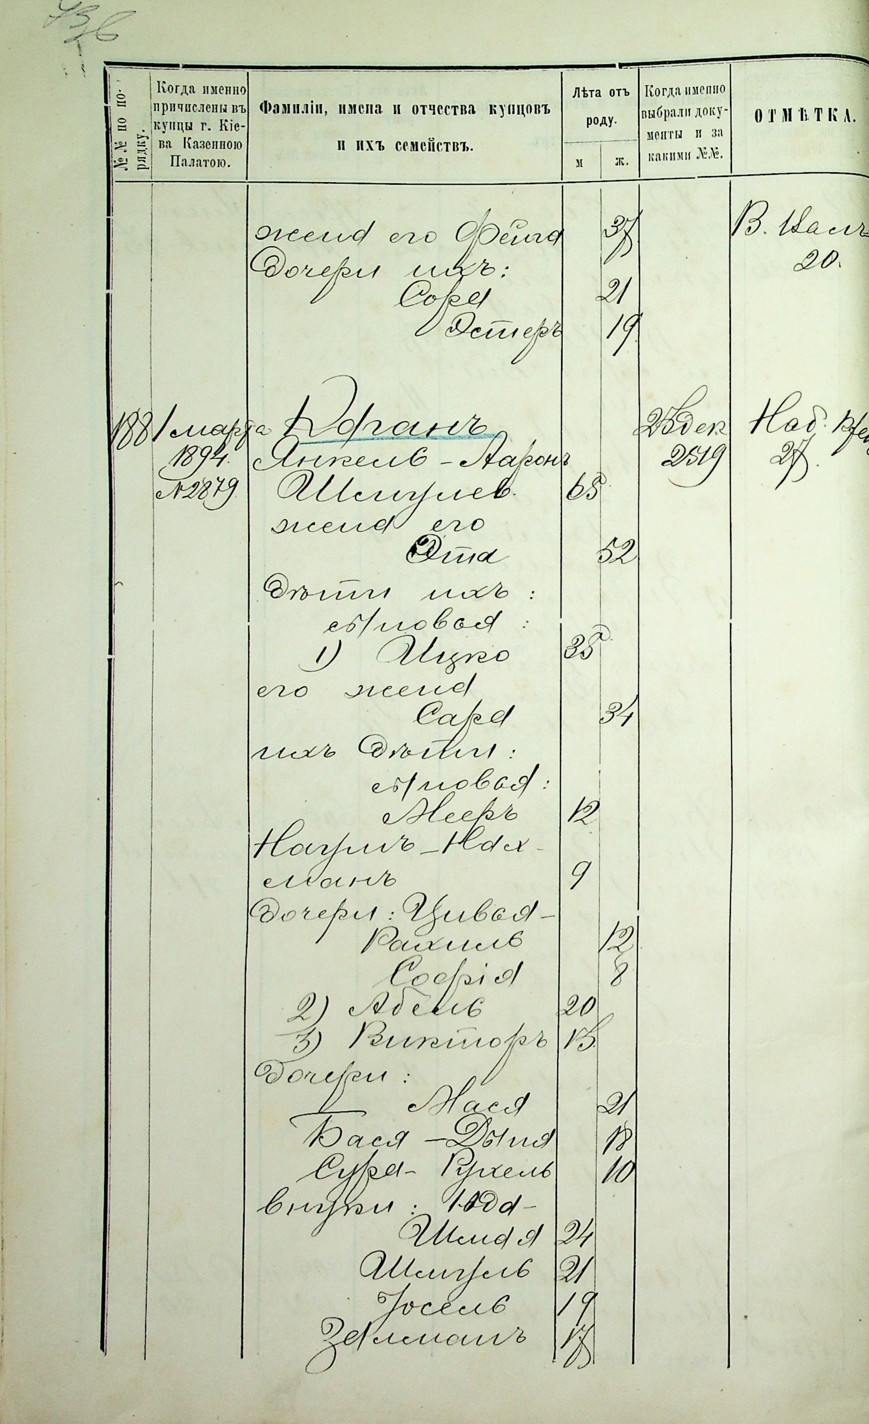 №№ по порядку.
Когда именно причислены въ купцы г. Кіева Казенною Палатою.
Фамиліи, имена и отчества купцовъ и ихъ семействъ.
Лѣта отъ роду.
м
ж.
Когда именно выбрали документы и за какими №№.
ОТМѢТКА.
жена его Фейга 37 В. Вал
Дочери ихъ: 20.
Сора 21
Эстеръ 19
188 1 марта 23 дек Наб.
1894 Янкель-Ааронъ 2519 27.
№2879 Шмулев. 65
жена его
Эта 52
Дѣти ихъ:
сыновья:
1) Ицко 35
его жена
Сара 34
ихъ Дѣти:
сыновья:
Мееръ 12
Наумъ-Нах-
манъ 9
Дочери: Цивья-
Рахиль 12
Софія 8
2) Абель 20
3) Викторъ 13
Дочери:
Мася 21
Бася-Дыня 18
Сура-Рухель 10
внуки: Юда-
Шмая 24
Шмуль 21
Іосель 19
Зельманъ 17